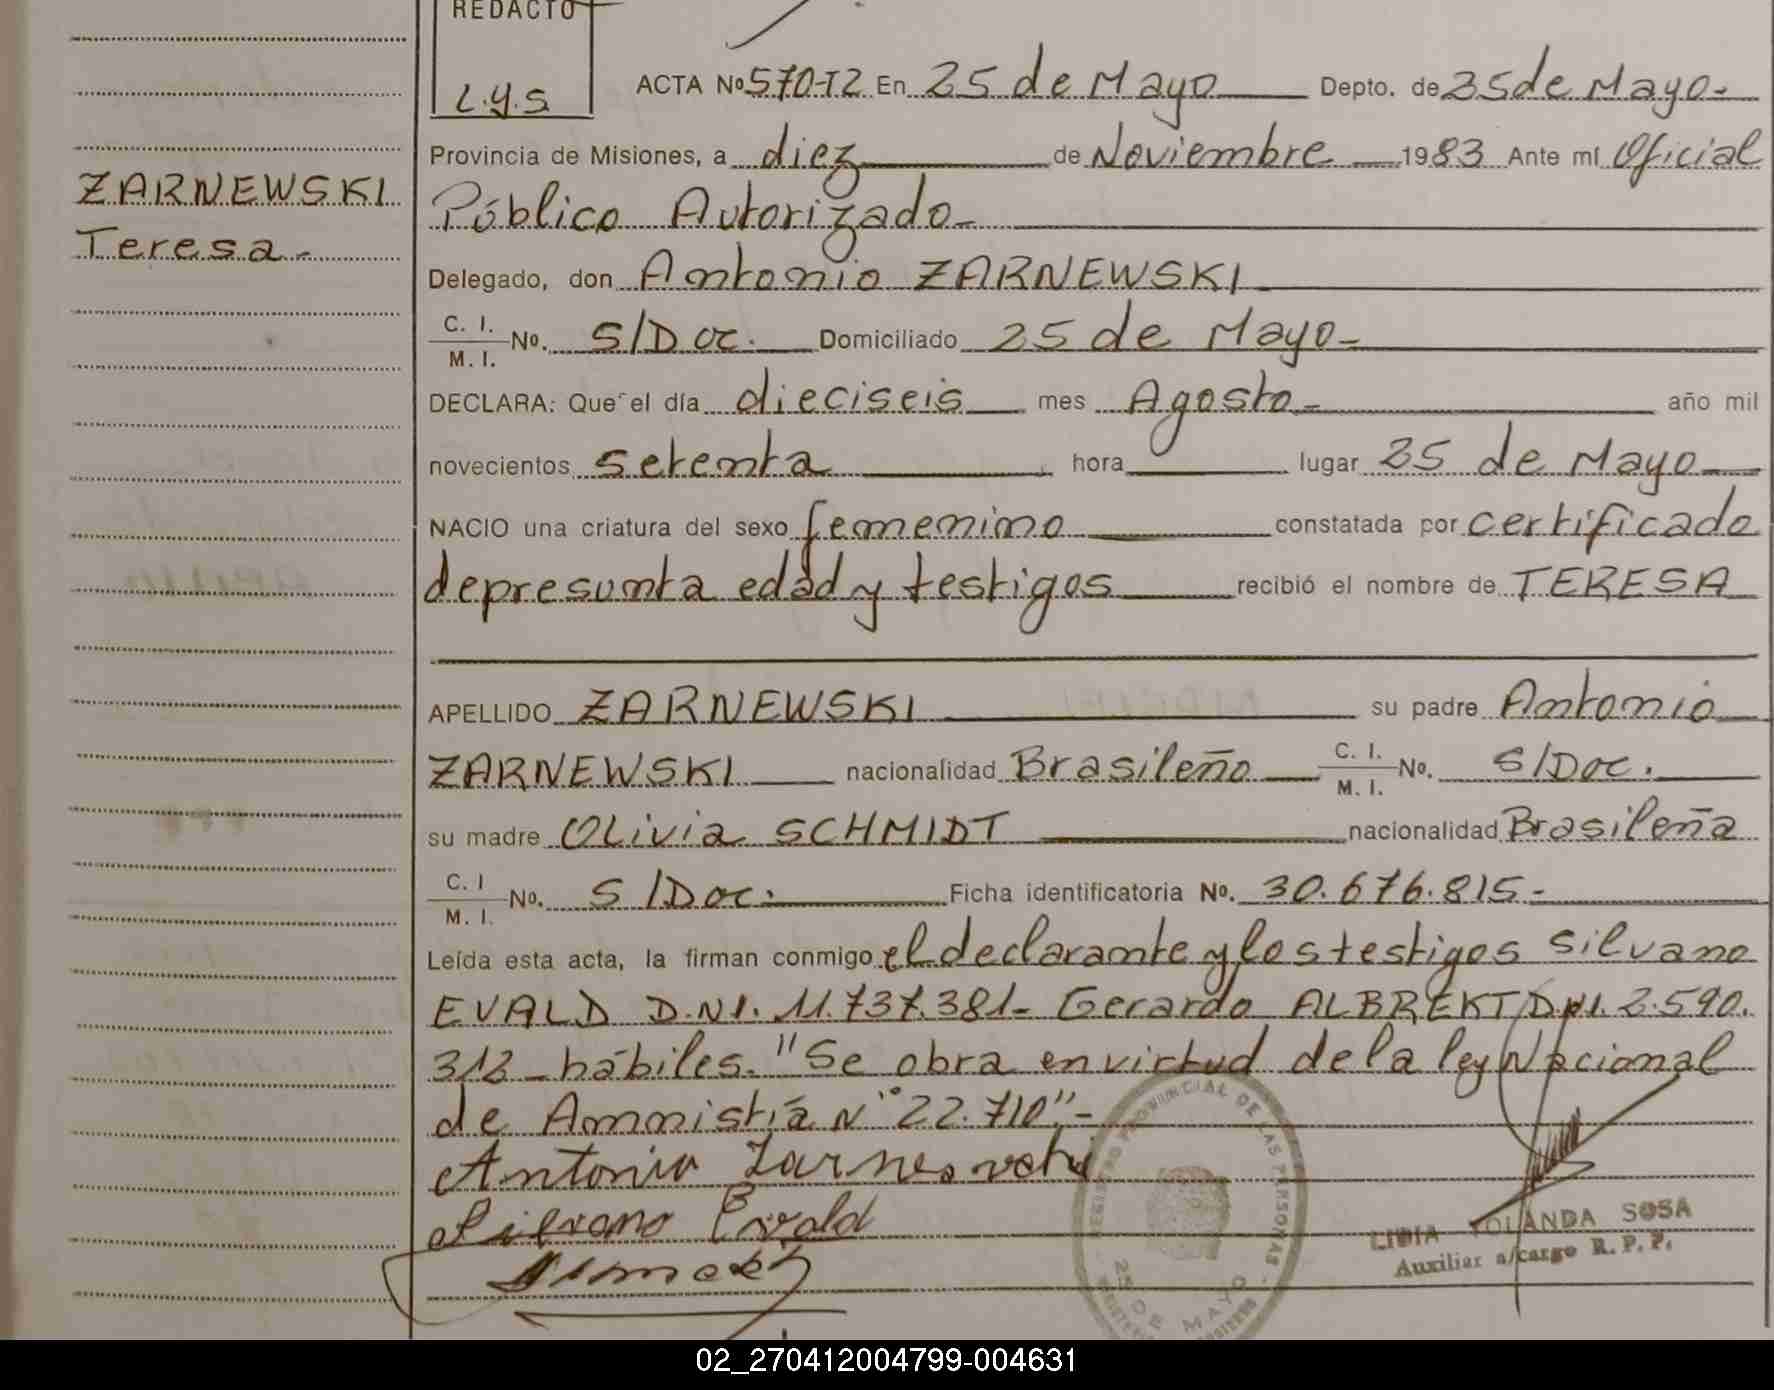 REDACTO
L.Y.S
ACTA Nº 570-T2 En 25 de Mayo Depto. de 25 de Mayo-
Provincia de Misiones, a diez de Noviembre 1983 Ante mí Oficial
Público Autorizado-
ZARNEWSKI
Teresa-
Delegado, don Antonio ZARNEWSKI
C. I.
M. I. Nº. S/Doc. Domiciliado 25 de Mayo-
DECLARA: Que el día dieciseis mes Agosto- año mil
novecientos setenta hora lugar 25 de Mayo
NACIO una criatura del sexo femenino constatada por certificado
de presunta edad y testigos recibió el nombre de TERESA
APELLIDO ZARNEWSKI su padre Antonio
ZARNEWSKI nacionalidad Brasileño C. I. M. I. Nº. S/Doc.
su madre OLivia SCHMIDT nacionalidad Brasileña
C. I M. I. Nº. S/Doc. Ficha identificatoria Nº. 30.676.815-
Leída esta acta, la firman conmigo el declarante y los testigos Silvano
EVALD D.N.I. 11.737.381- Gerardo ALBREKT D.N.I. 2.590.
313-hábiles. "Se obra en virtud de la ley Nacional
de Amnistía Nº 22.710"-
Antonio
Silvano Evald
REGISTRO PROVINCIAL DE LAS PERSONAS
25 DE MAYO
LIDIA YOLANDA SOSA
Auxiliar a/cargo R. P. P.
02_270412004799-004631